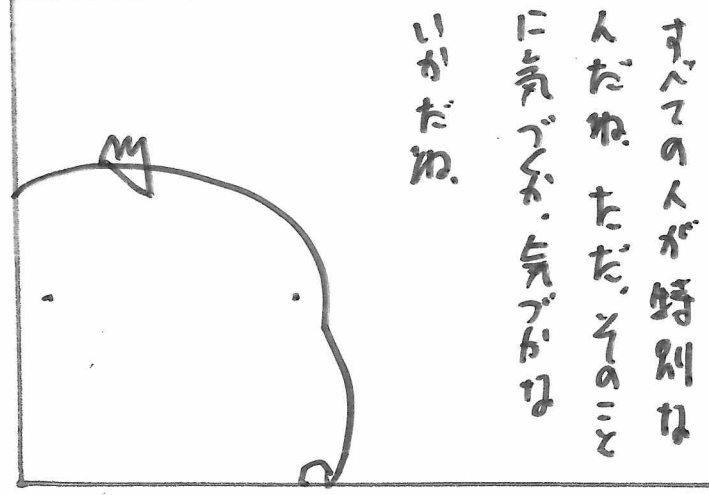 すべての人が特別な
んだね。ただ、そのこと
に気づくか、気づかな
いかだね。